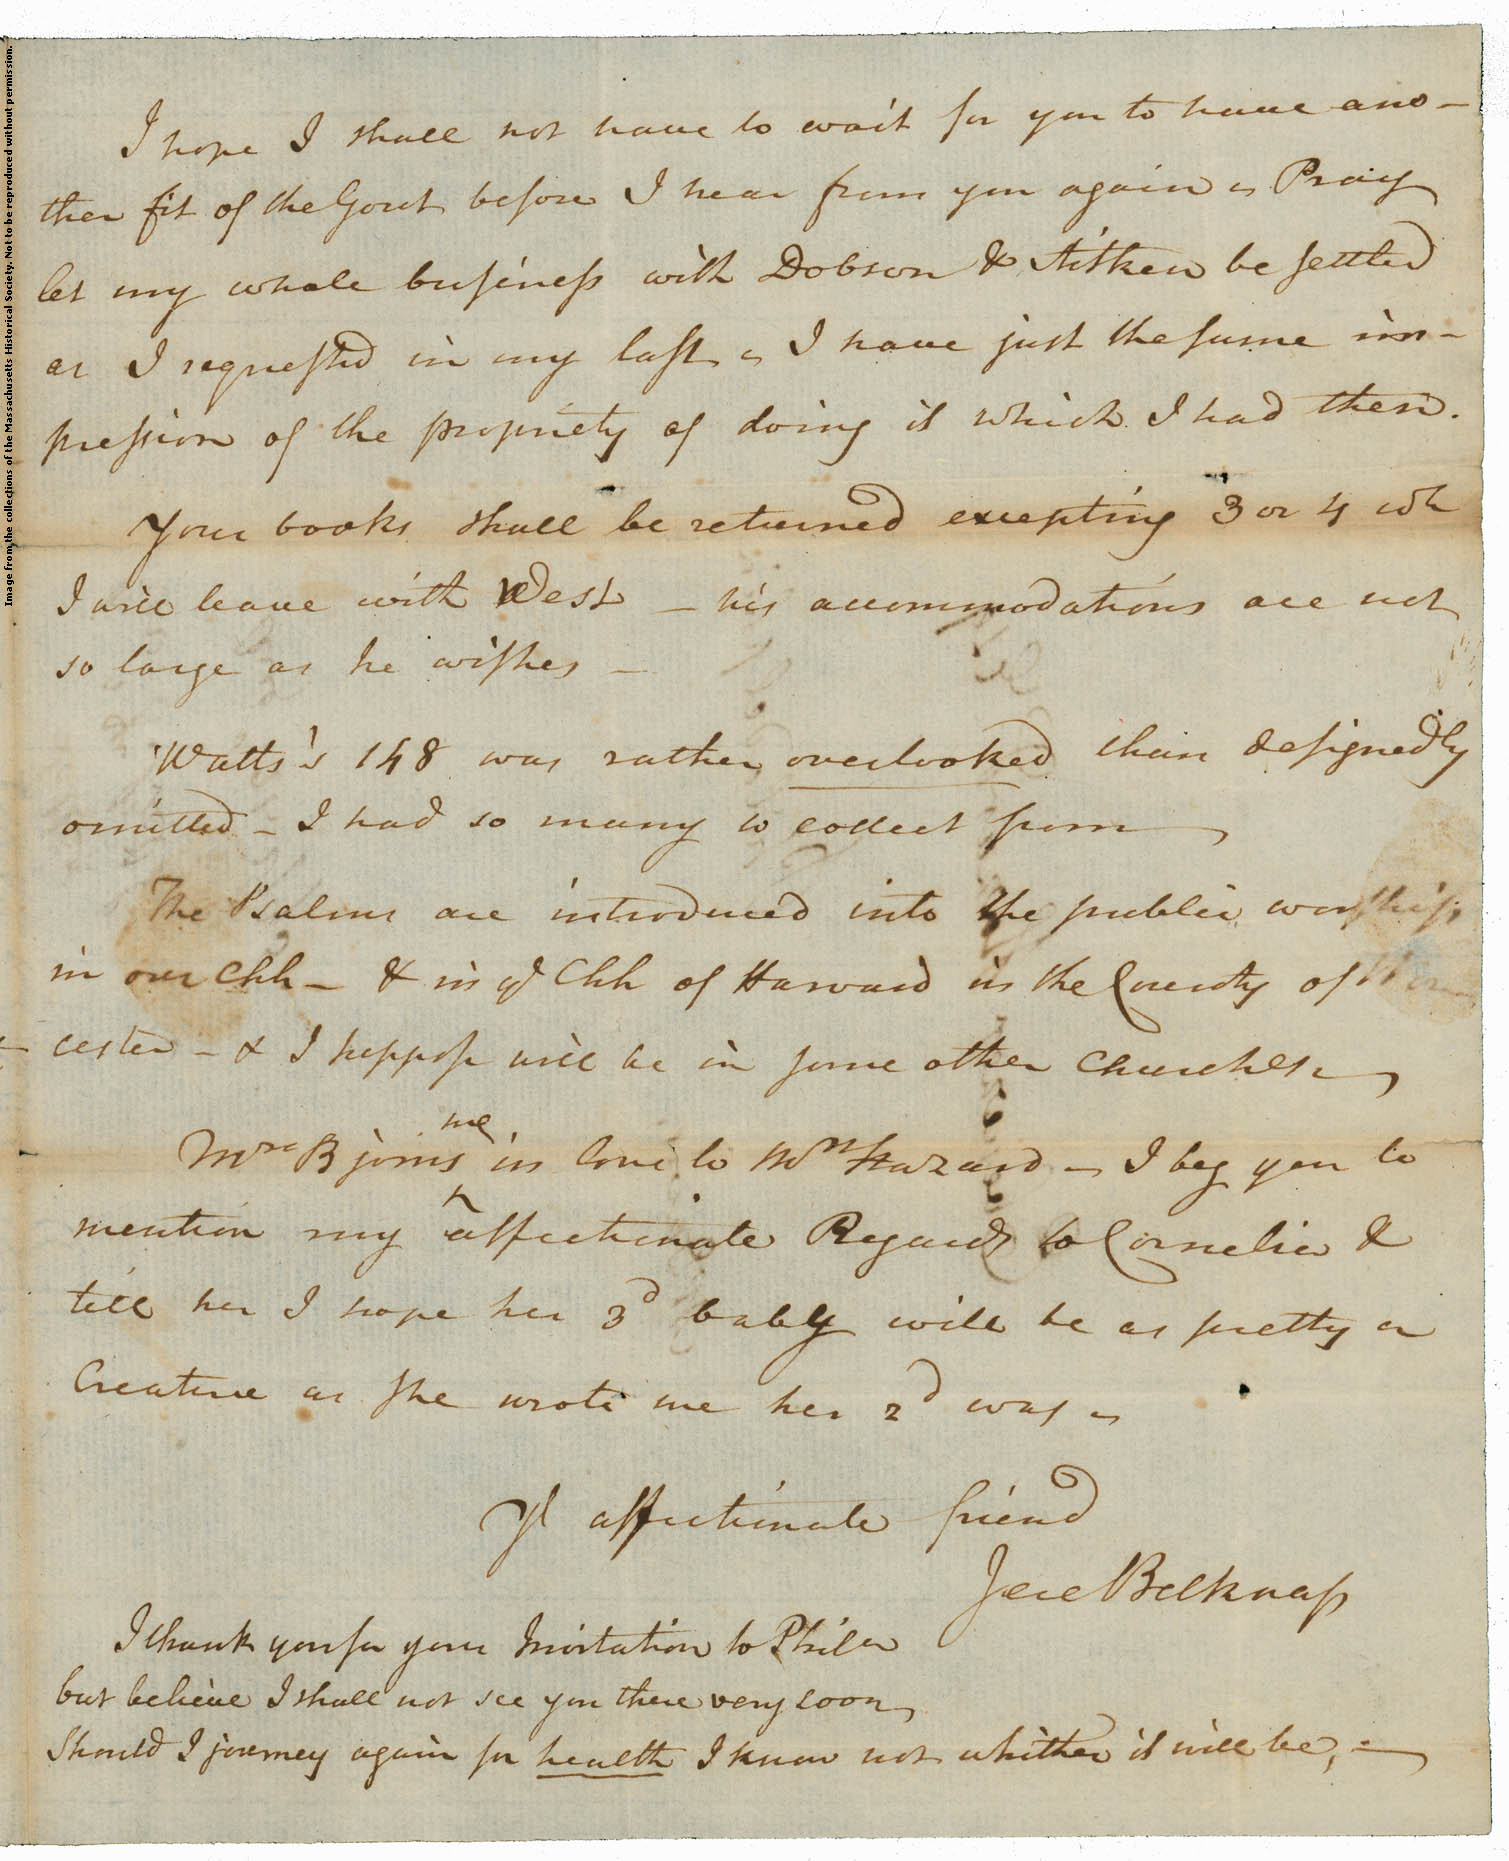 Image from the collections of the Massachusetts Historical Society. Not to be reproduced without permission.
I hope I shall not have to wait for you to have ano-
ther fit of the Gout before I hear from you again - Pray
let my whole business with Dobson & Aitken be settled
as I requested in my last - I have just the same im-
pression of the propriety of doing it which I had then.
Your books shall be returned excepting 3 or 4 wh
I will leave with West - his accommodations are not
so large as he wishes -
Watts's 148 was rather overlooked than designedly
omitted - I had so many to collect from
The Psalms are introduced into the public worship
in our Chh - & in ye Chh of Harvard in the County of Wor
cester - & I suppose will be in some other Churches -
Mrs B joins me in love to Mrs Hazard - I beg you to
mention my affectionate Regards to Cornelia &
tell her I hope her 3d baby will be as pretty a
Creature as she wrote me her 2d was -
Yr affectionate friend
Jere Belknap
I thank you for your Invitation to Phila
but believe I shall not see you there very soon,
Should I journey again for health I know not whither it will be, -